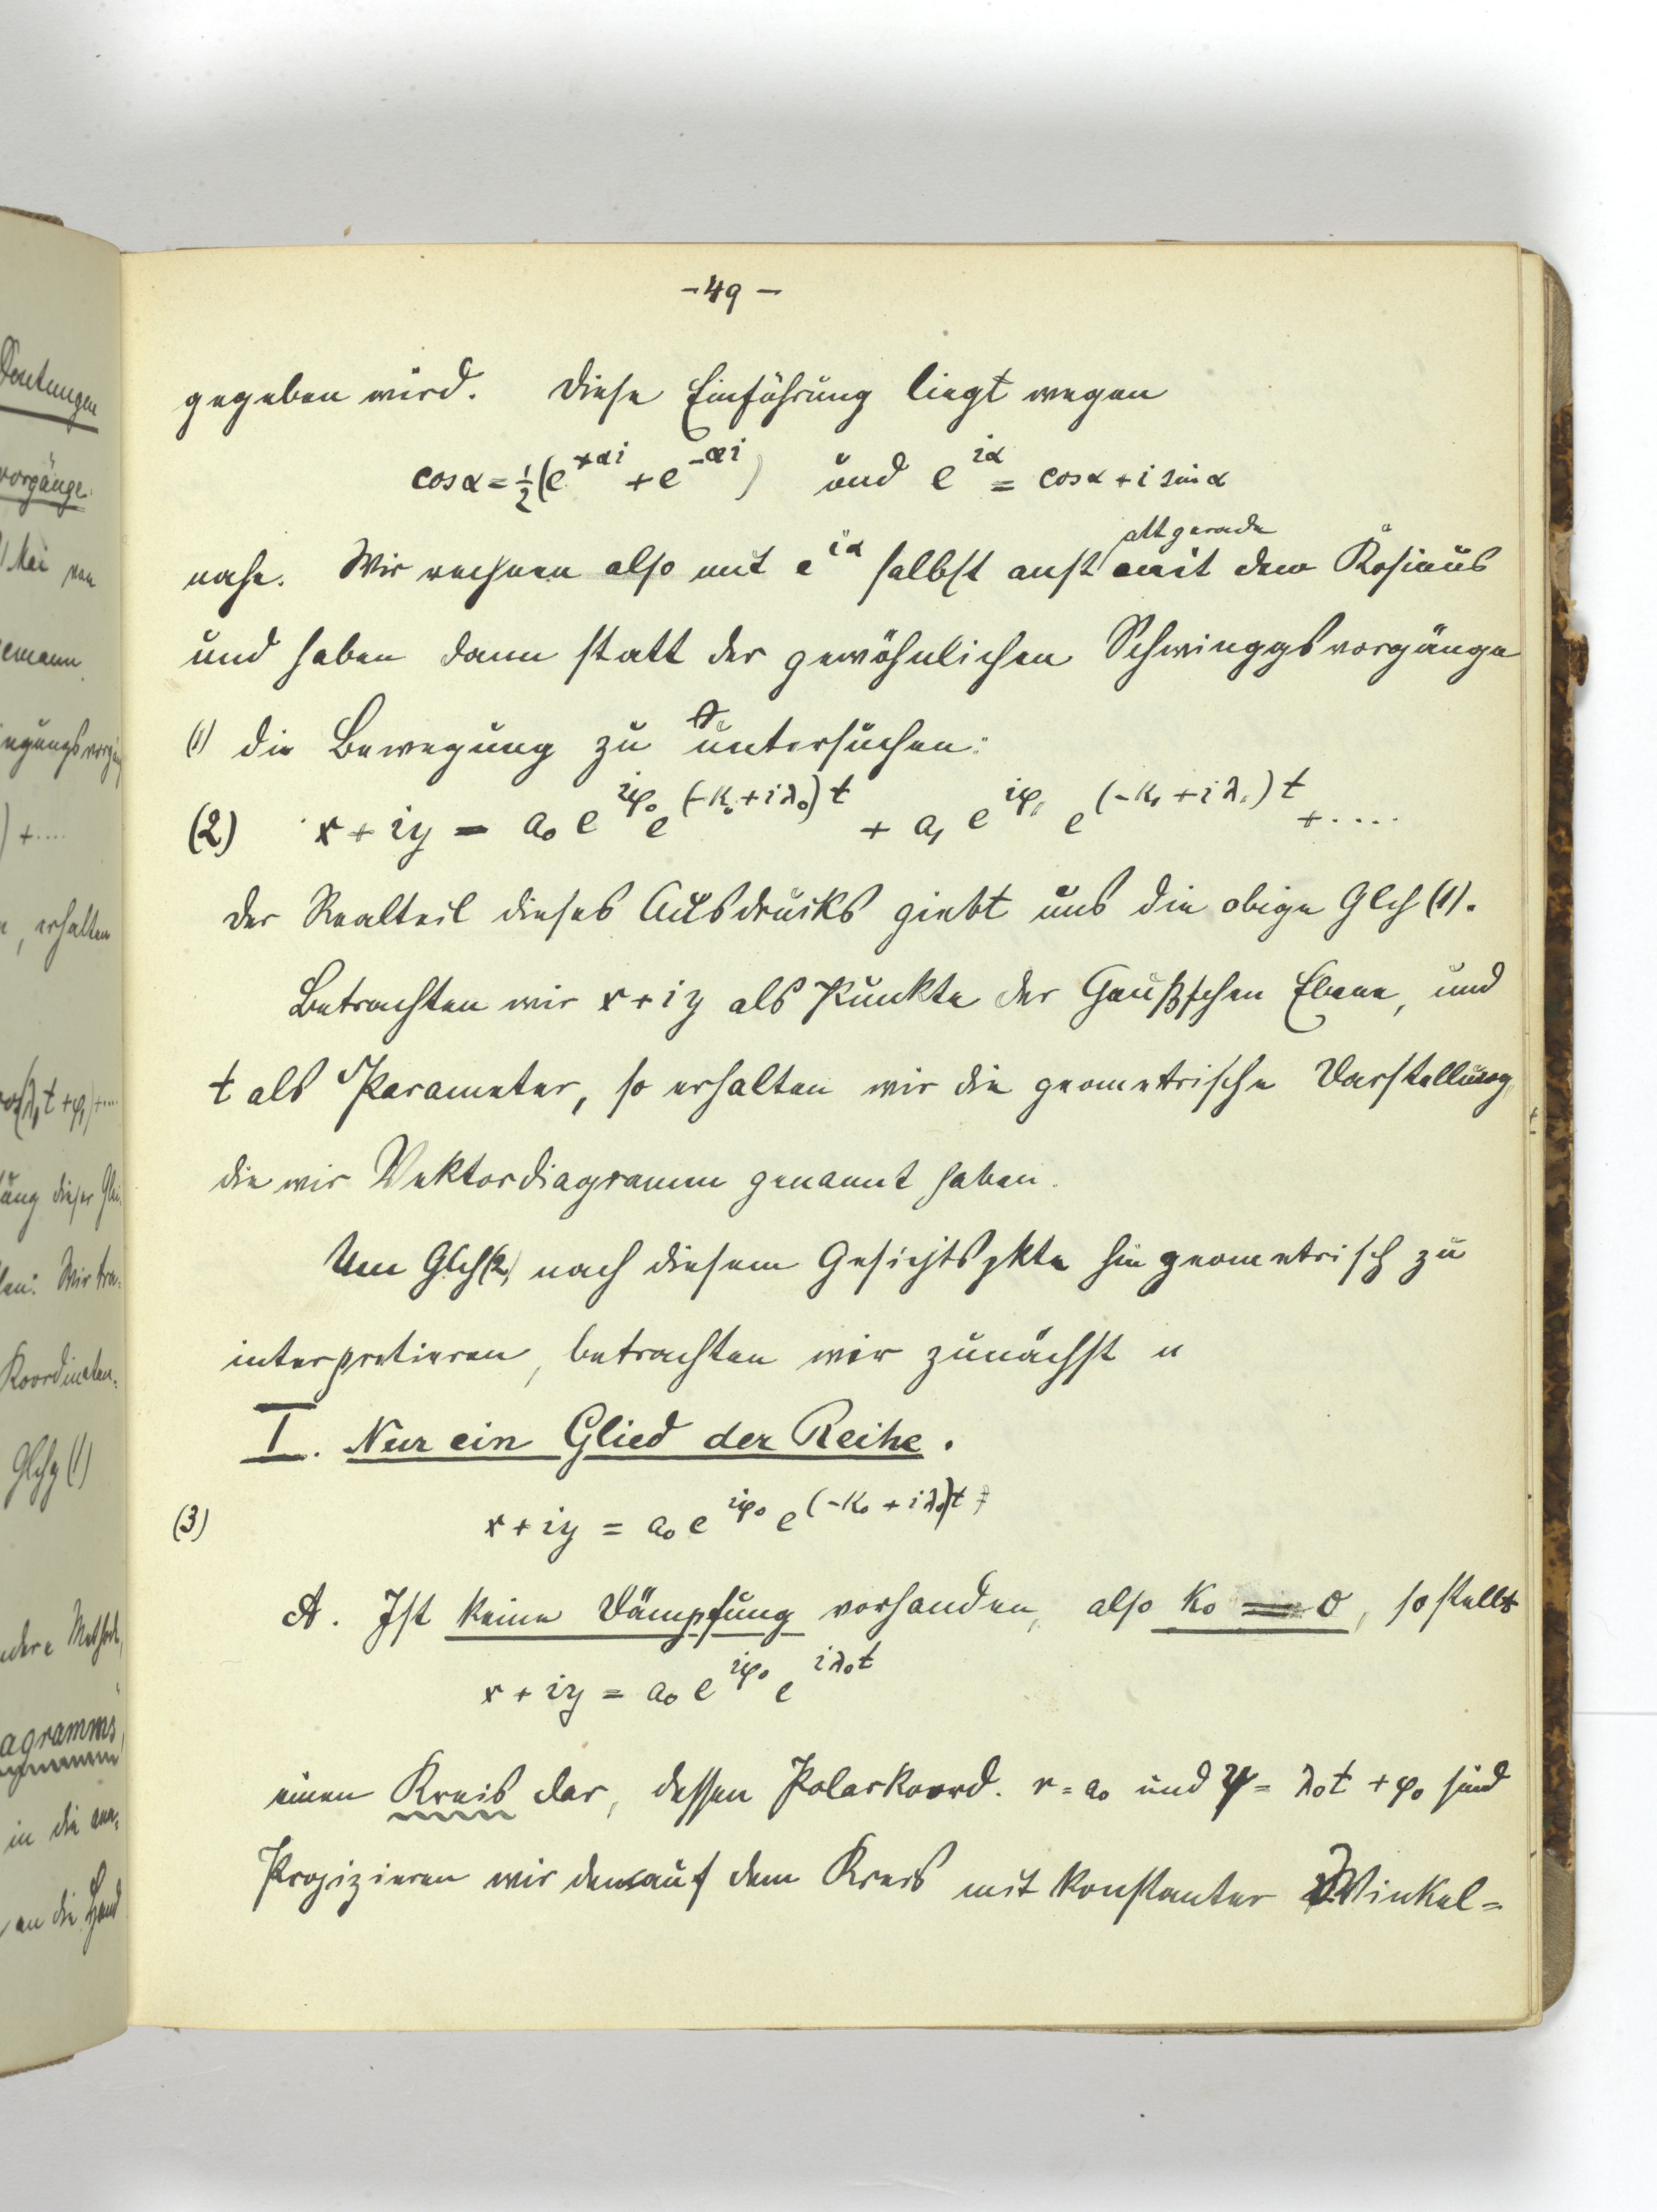 Deutungen
vorgänge.
Mai von
) + ....
, erhalten
ung dieser Glei:
Wir tra:
Koordinaten:
Glchg (1)
andere Methode,
agramms,
in die
an die Hand
- 49 -
gegeben wird. Diese Einführung liegt wegen
cos α = ½ (e^{+αi} + e^{-αi}) und e^{iα} = cos α + i sin α
nahe. Wir rechnen also mit e^{iα} selbst anst att gerade mit dem Kosinus
und haben dann statt der gewöhnlichen Schwinggsvorgänge
(1) die Bewegung zu untersuchen:
(2) x + iy = a₀ e^{iφ₀} e^{(-k₀ + iλ₀)t} + a₁ e^{iφ₁} e^{(-k₁ + iλ₁)t} + ....
Der Realteil dieses Ausdrucks giebt uns die obige Glch (1).
Betrachten wir x + iy als Punkte der Gaußschen Ebene, und
t als Parameter, so erhalten wir die geometrische Darstellung,
die wir Vektordiagramm genannt haben.
Um Glch (2) nach diesem Gesichtspkte hin geometrisch zu
interpretieren, betrachten wir zunächst
I. Nur ein Glied der Reihe.
(3) x + iy = a₀ e^{iφ₀} e^{(-k₀ + iλ₀)t}
A. Ist keine Dämpfung vorhanden, also k₀ = 0, so stellt
x + iy = a₀ e^{iφ₀} e^{iλ₀t}
einen Kreis dar, dessen Polarkoord. r = a₀ und ψ = λ₀t + φ₀ sind
Projizieren wir den auf dem Kreis mit konstanter Winkel=